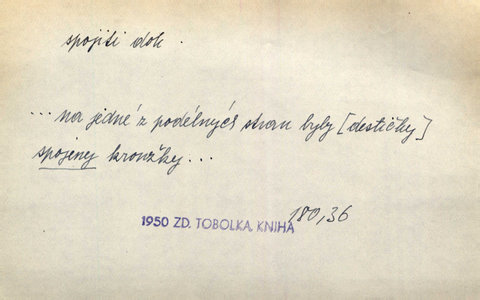 spojiti dok.
... na jedné z podélných stran byly [destičky]
spojeny kroužky...
180,36
1950 ZD. TOBOLKA, KNIHA